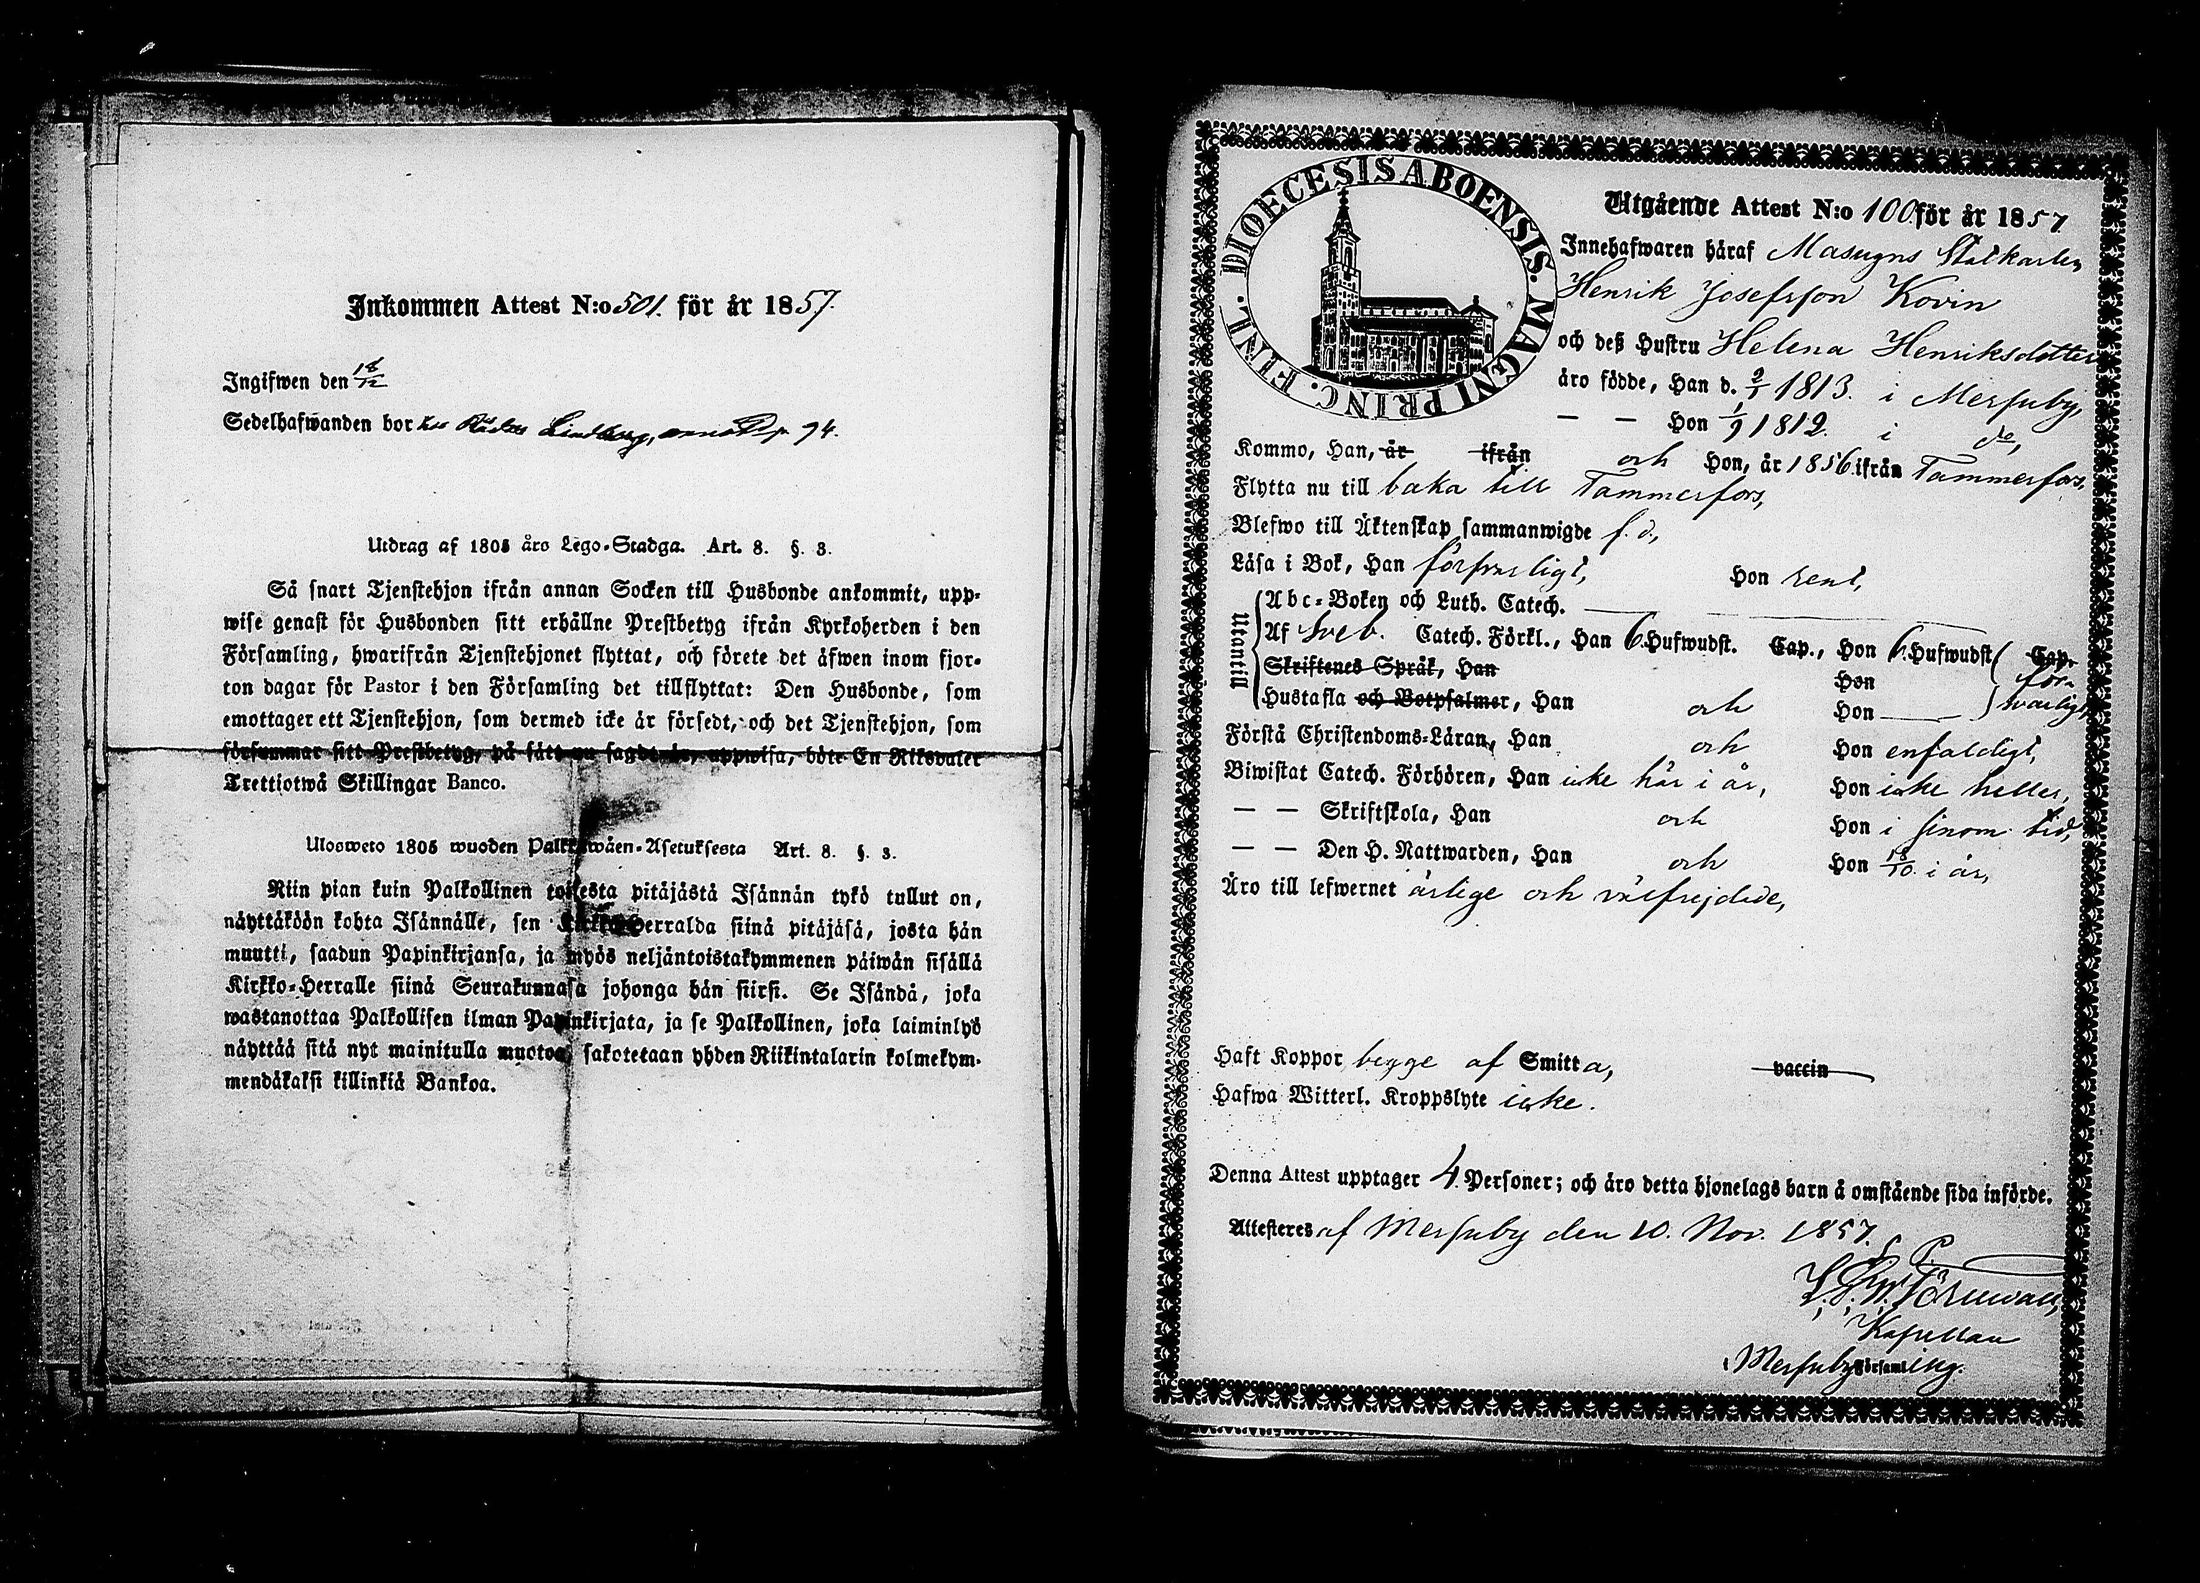 Inkommen Attest N:o 501. för år 1857.
Ingifwen den 18/12
Sedelhafwanden bor hos Lindberg, 94.
Utdrag af 1805 års Lego-Stadga. Art. 8. §. 3.
Så snart Tjenstehjon ifrån annan Socken till Husbonde ankommit, upp-
wise genast för Husbonden sitt erhållne Prestbetyg ifrån Kyrkoherden i den
Församling, hwarifrån Tjenstehjonet flyttat, och förete det äfwen inom fjor-
ton dagar för Pastor i den Församling det tillflyttat: Den Husbonde, som
emottager ett Tjenstehjon, som dermed icke är försedt, och det Tjenstehjon, som
försummar sitt Prestbetyg, på sätt nu sagdt är, uppwisa, böte En Riksdaler
Trettiotwå Skillingar Banco.
Ulosweto 1805 wuoden Palkkawäen-Asetuksesta Art. 8. §. 3.
Niin pian kuin Palkollinen toisesta pitäjästä Isännän tykö tullut on,
näyttäköön kohta Isännälle, sen Kirkko-Herralda siinä pitäjäsä, josta hän
muutti, saadun Papinkirjansa, ja myös neljäntoistakymmenen päiwän sisällä
Kirkko-Herralle siinä Seurakunnasa johonga hän siirsi. Se Isändä, joka
wastanottaa Palkollisen ilman Papinkirjata, ja se Palkollinen, joka laiminlyö
näyttää sitä nyt mainitulla muotoa, sakotetaan yhden Riikintalarin kolmekym-
mendäkaksi killinkiä Bankoa.
DIOECESIS ABOENSIS. MAGNI PRINC. FINL.
Utgående Attest N:o 100 för år 1857
Innehafwaren häraf Masugns Stalkarlen
Henrik Josefsson Kovin
och deß Hustru Helena Henriksdotter
äro födde, Han d. 2/1 1813. i Merſuby,
— — Hon 1/9 1812. i do,
Kommo, Han, år ifrån och Hon, år 1856 ifrån Tammerfors,
Flytta nu till baka till Tammerfors,
Blefwo till Äktenskap sammanwigde f. d.,
Läsa i Bok, Han försvarligt, Hon rent,
Utantill
Abc-Boken och Luth. Catech. ——
Af Sveb. Catech. Förkl., Han 6 Hufwudst. Cap., Hon 6 Hufwudst. Cap.
Skriftenes Språk, Han Hon för-
Hustafla och Botpsalmer, Han och Hon —— svarligt,
Förstå Christendoms-Läran, Han och Hon enfaldigt,
Biwistat Catech. Förhören, Han icke här i år, Hon icke heller,
— — Skriftskola, Han och Hon i sinom tid,
— — Den H. Nattwarden, Han och Hon 18/10. i år,
Äro till lefwernet ärlige och välfrejdade,
Haft Koppor begge af Smitta, vaccin
Hafwa Witterl. Kroppslyte icke.
Denna Attest upptager 4. Personer; och äro detta hjonelags barn å omstående sida införde.
Attesteras af Merſuby den 10. Nov. 1857.
Törnwall,
Kapellan
i Merſuby Församling.